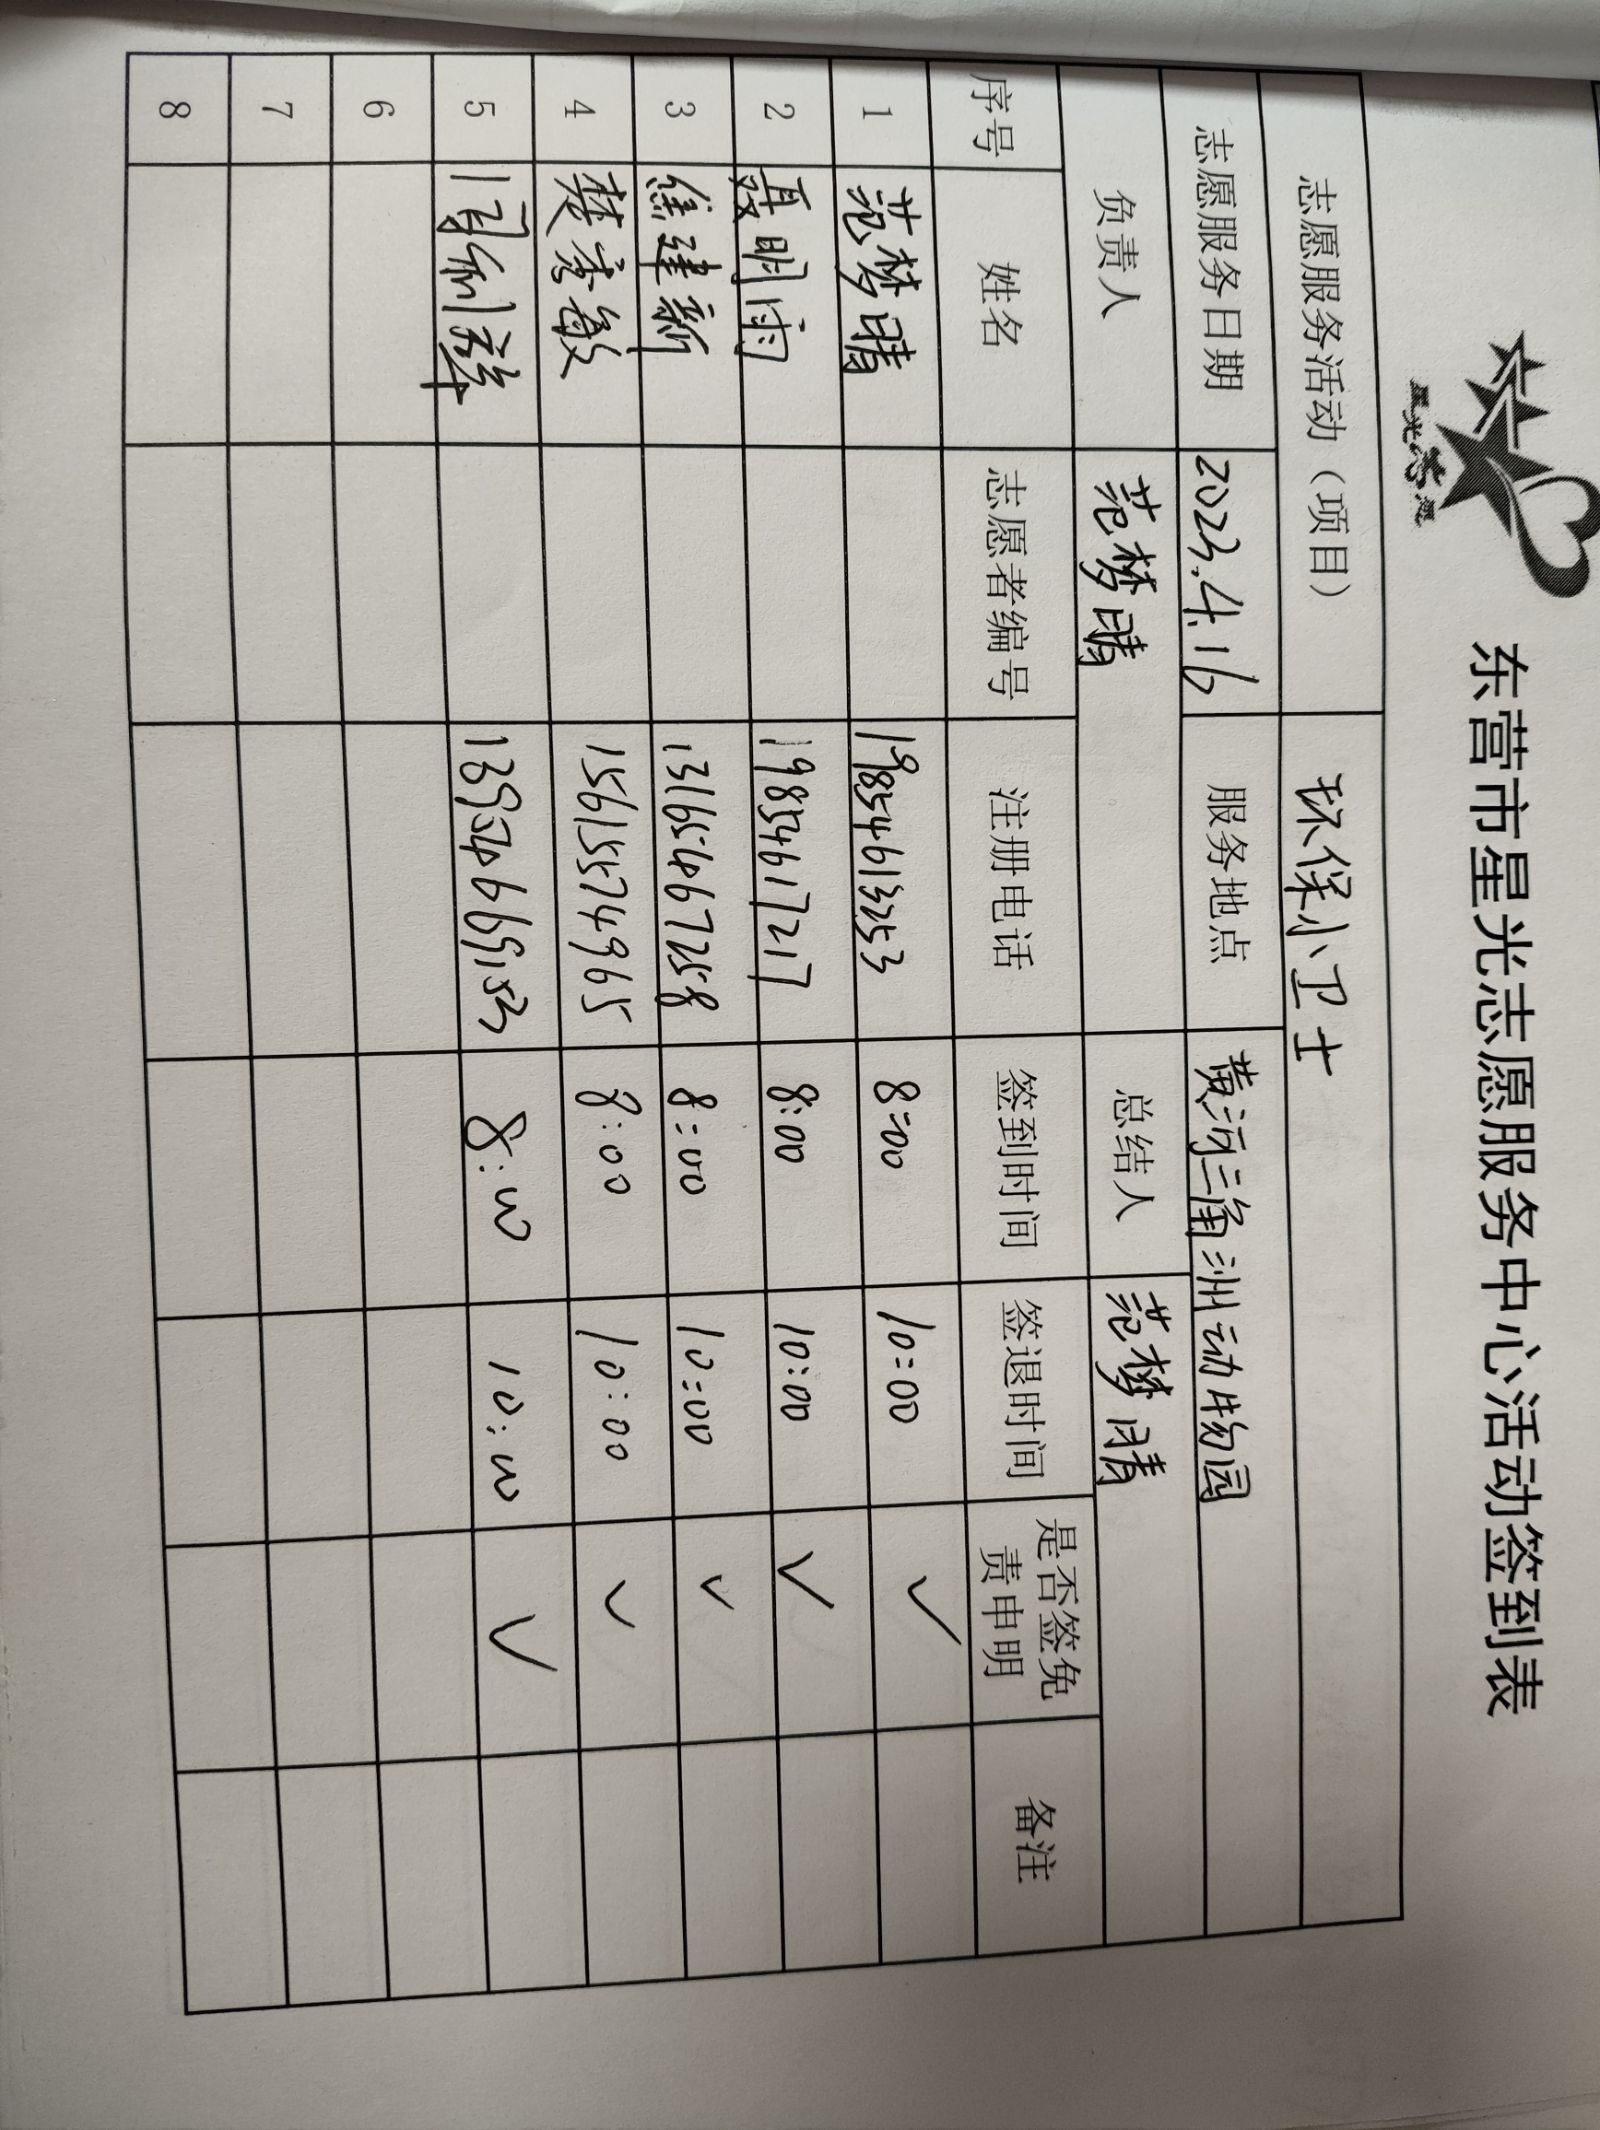 星光志愿
东营市星光志愿服务中心活动签到表
志愿服务活动（项目） 环保小卫士
志愿服务日期 2023.4.16 服务地点 黄河三角洲动物园
负责人 范梦晴 总结人 范梦晴
序号 姓名 志愿者编号 注册电话 签到时间 签退时间 是否签免责申明 备注
1 范梦晴 19854613253 8:00 10:00 ✓
2 聂明雨 19854617217 8:00 10:00 ✓
3 徐建新 13165467258 8:00 10:00 ✓
4 樊秀敏 15615574965 8:00 10:00 ✓
5 8:00 10:00 ✓
6
7
8